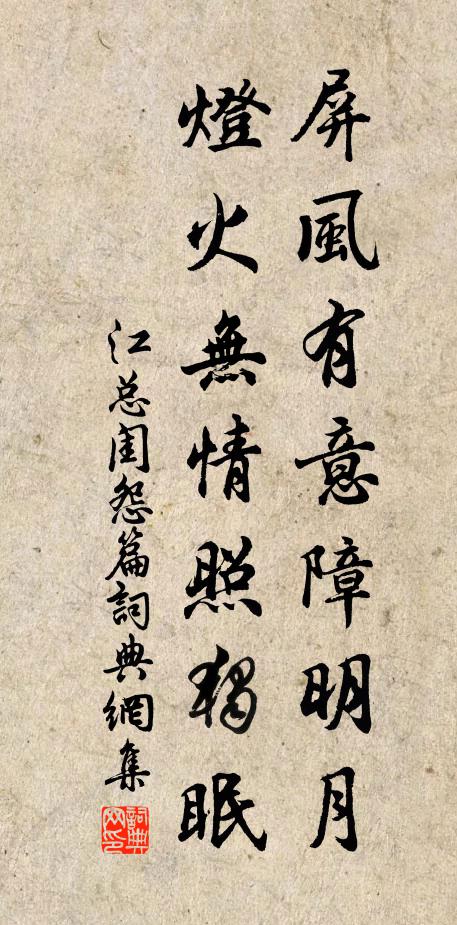 屏風有意障明月
燈火無情照獨眠
江总閨怨篇詞典網集
詞典
网印